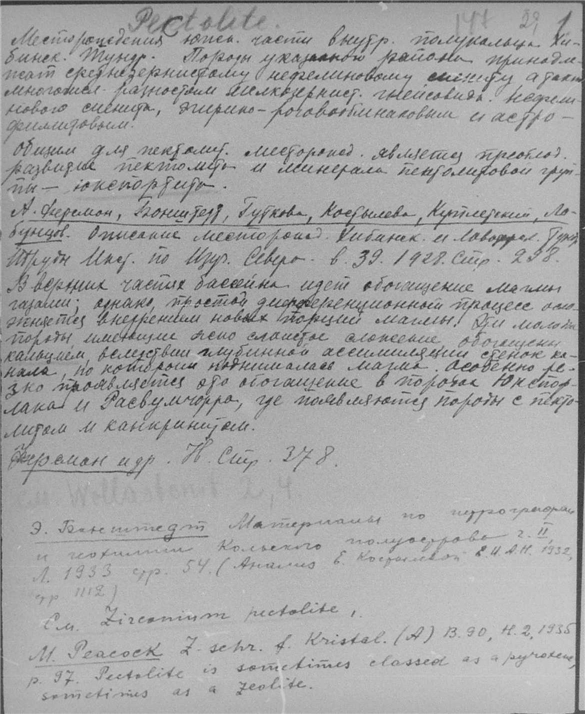 Pectolite. 147 29 1
Месторождения южн. части внутр. полукольца Хи-
бинск. Тундр. Породы указанной района принадле-
жат среднезернистому нефелиновому сиениту а также
многочисл. разностям мелкозернист. гнейсовидн. нефели-
нового сиенита, эгирино-роговообманковым и астро-
филлитовым.
Общим для пектолит. месторожд. является преоблад.
развитие пектолита и минерала пектолитовой груп-
пы — юкспорита.
А. Ферсман, Бонштедт, Гуткова, Костылева, Куплетский, Ла-
бунцов. Описание месторожд. Хибинск. и Ловозерск. Тундр
Труды Инст. по Изуч. Севера. в. 39. 1928. Стр. 238.
В верхних частях бассейна идет обогащение магмы
газами; однако, простой дифференционный процесс осло-
жняется внедрением новых порций магмы. Эти молодые
породы имеющие ясно слоистое сложение обогащены
кальцием, вследствии глубинной ассимиляции стенок ка-
нала, по которому поднималась магма. Особенно ре-
зко проявляется это обогащение в породах Юкспор-
лака и Расвумчорра, где появляются породы с пекто-
литом и канкринитом.
Ферсман и др. Н. Стр. 378.
см. Wollastonit 2, 4.
Э. Бонштедт Материалы по петрографии
и геохимии Кольского полуострова ч. II,
Л. 1933 стр. 54. (Анализ Е. Костылевой Е. И А.Н. 1932,
стр 1112)
См. Zirconium pectolite.
M. Peacock Z. schr. f. Kristal. (A) B. 90, H. 2, 1935
p. 97. Pectolite is sometimes classed as a pyroxene,
sometimes as a zeolite.